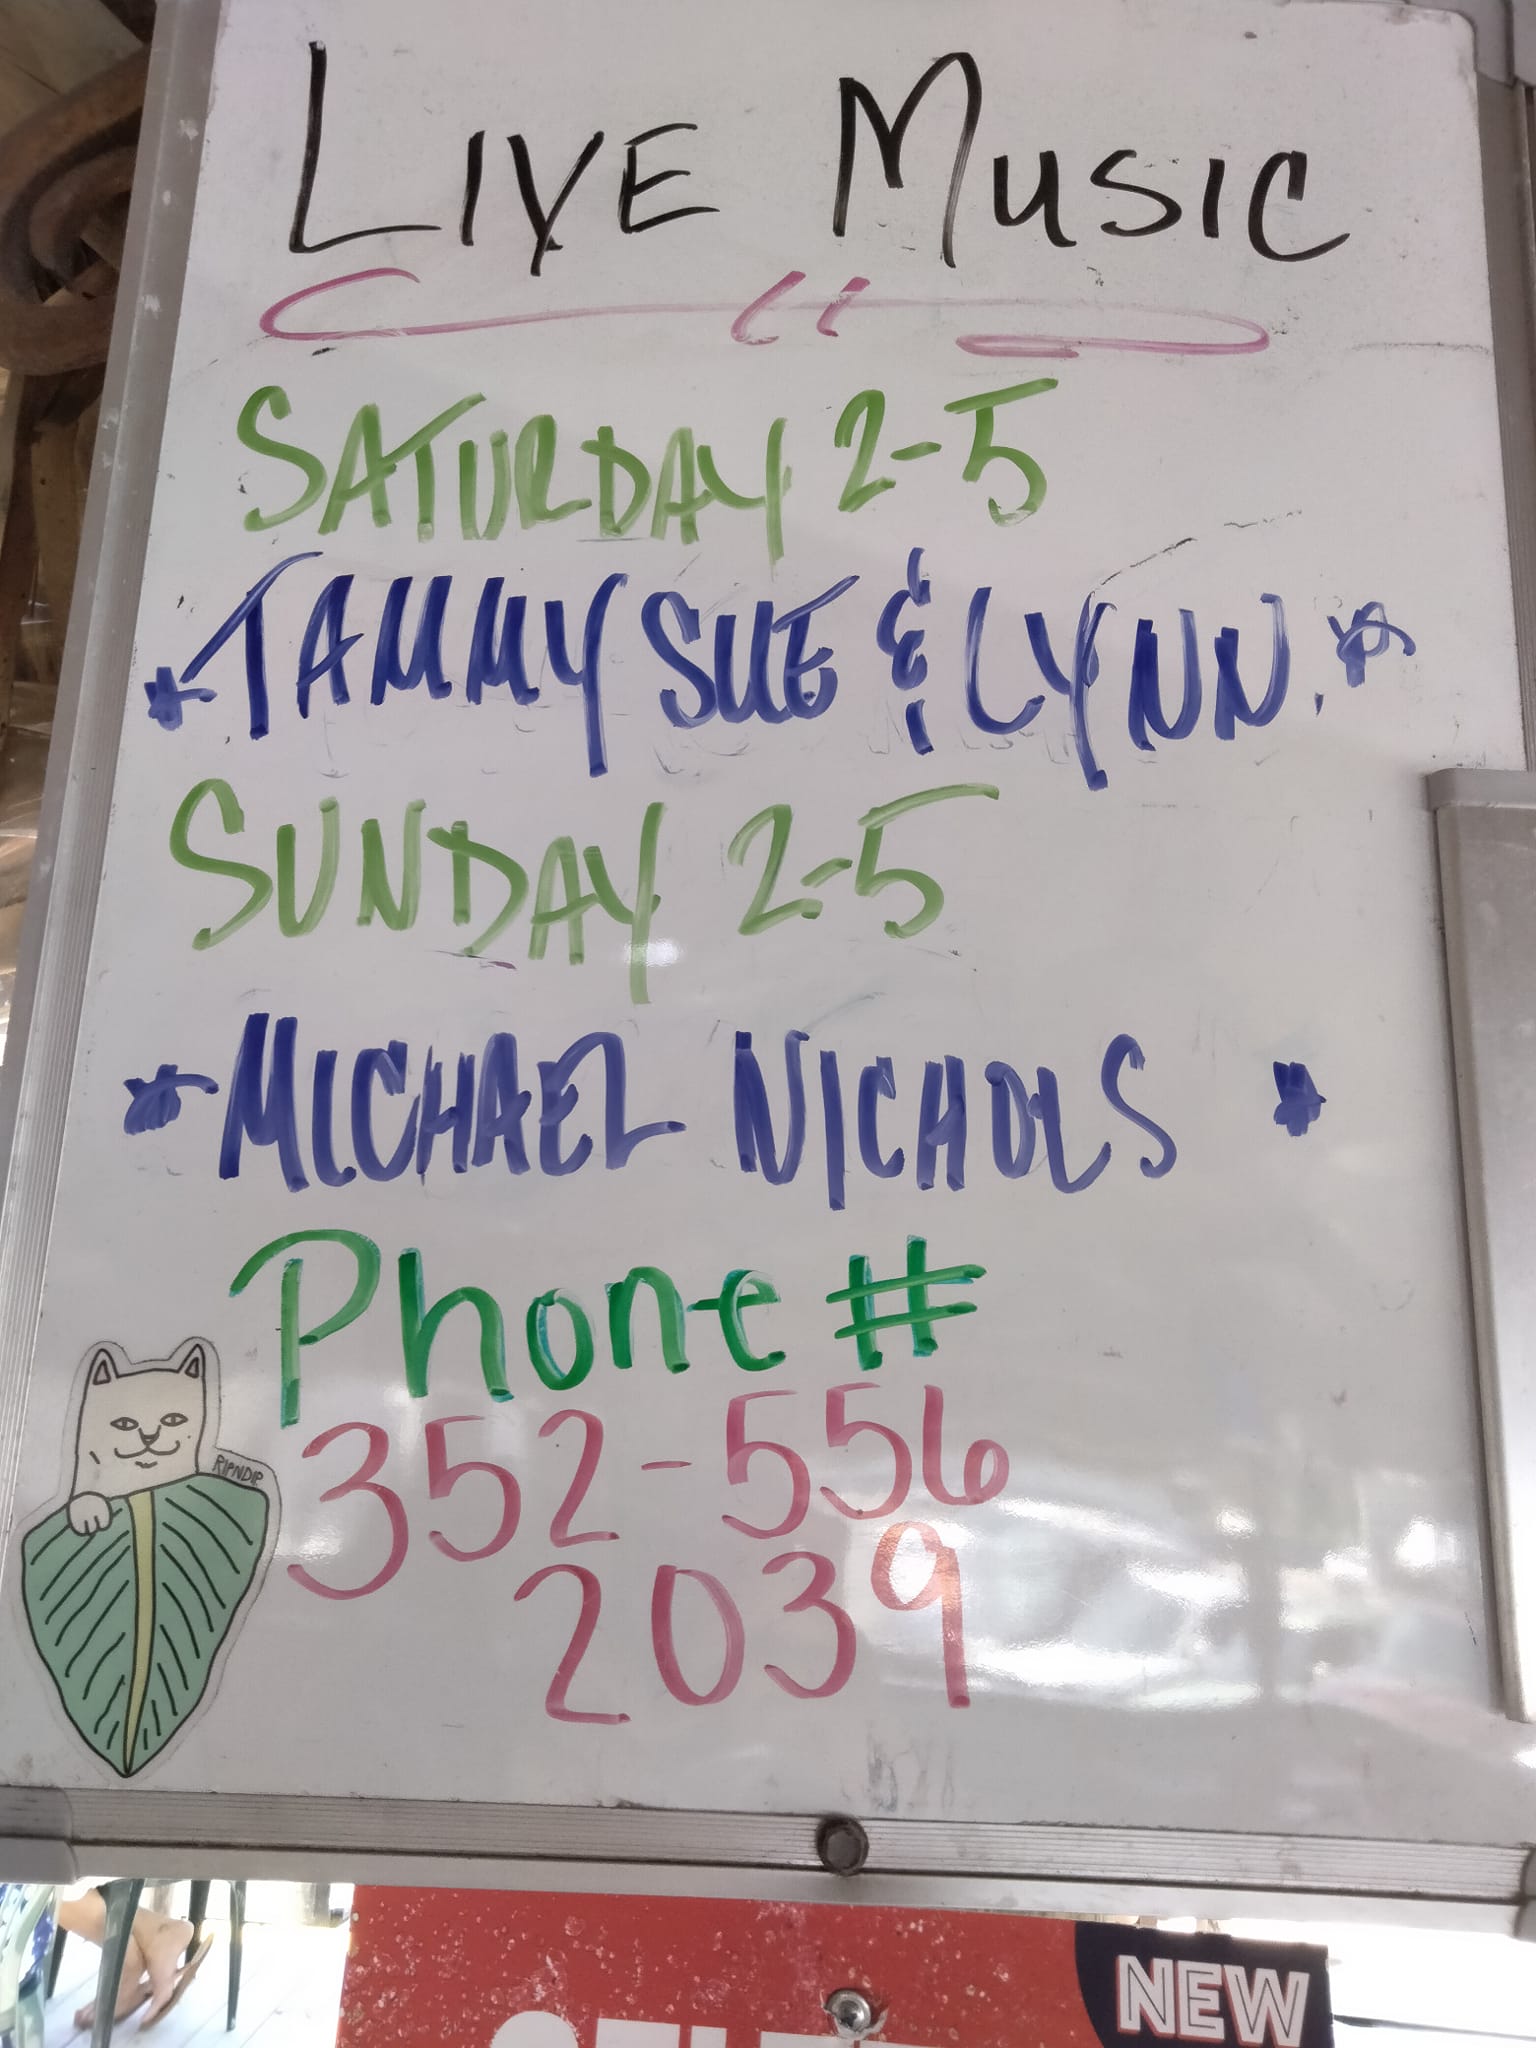 LIVE MUSIC
SATURDAY 2-5
*TAMMY SUE & LYNN.*
SUNDAY 2-5
*MICHAEL NICHOLS *
Phone #
352-556
2039
RIPNDIP
NEW